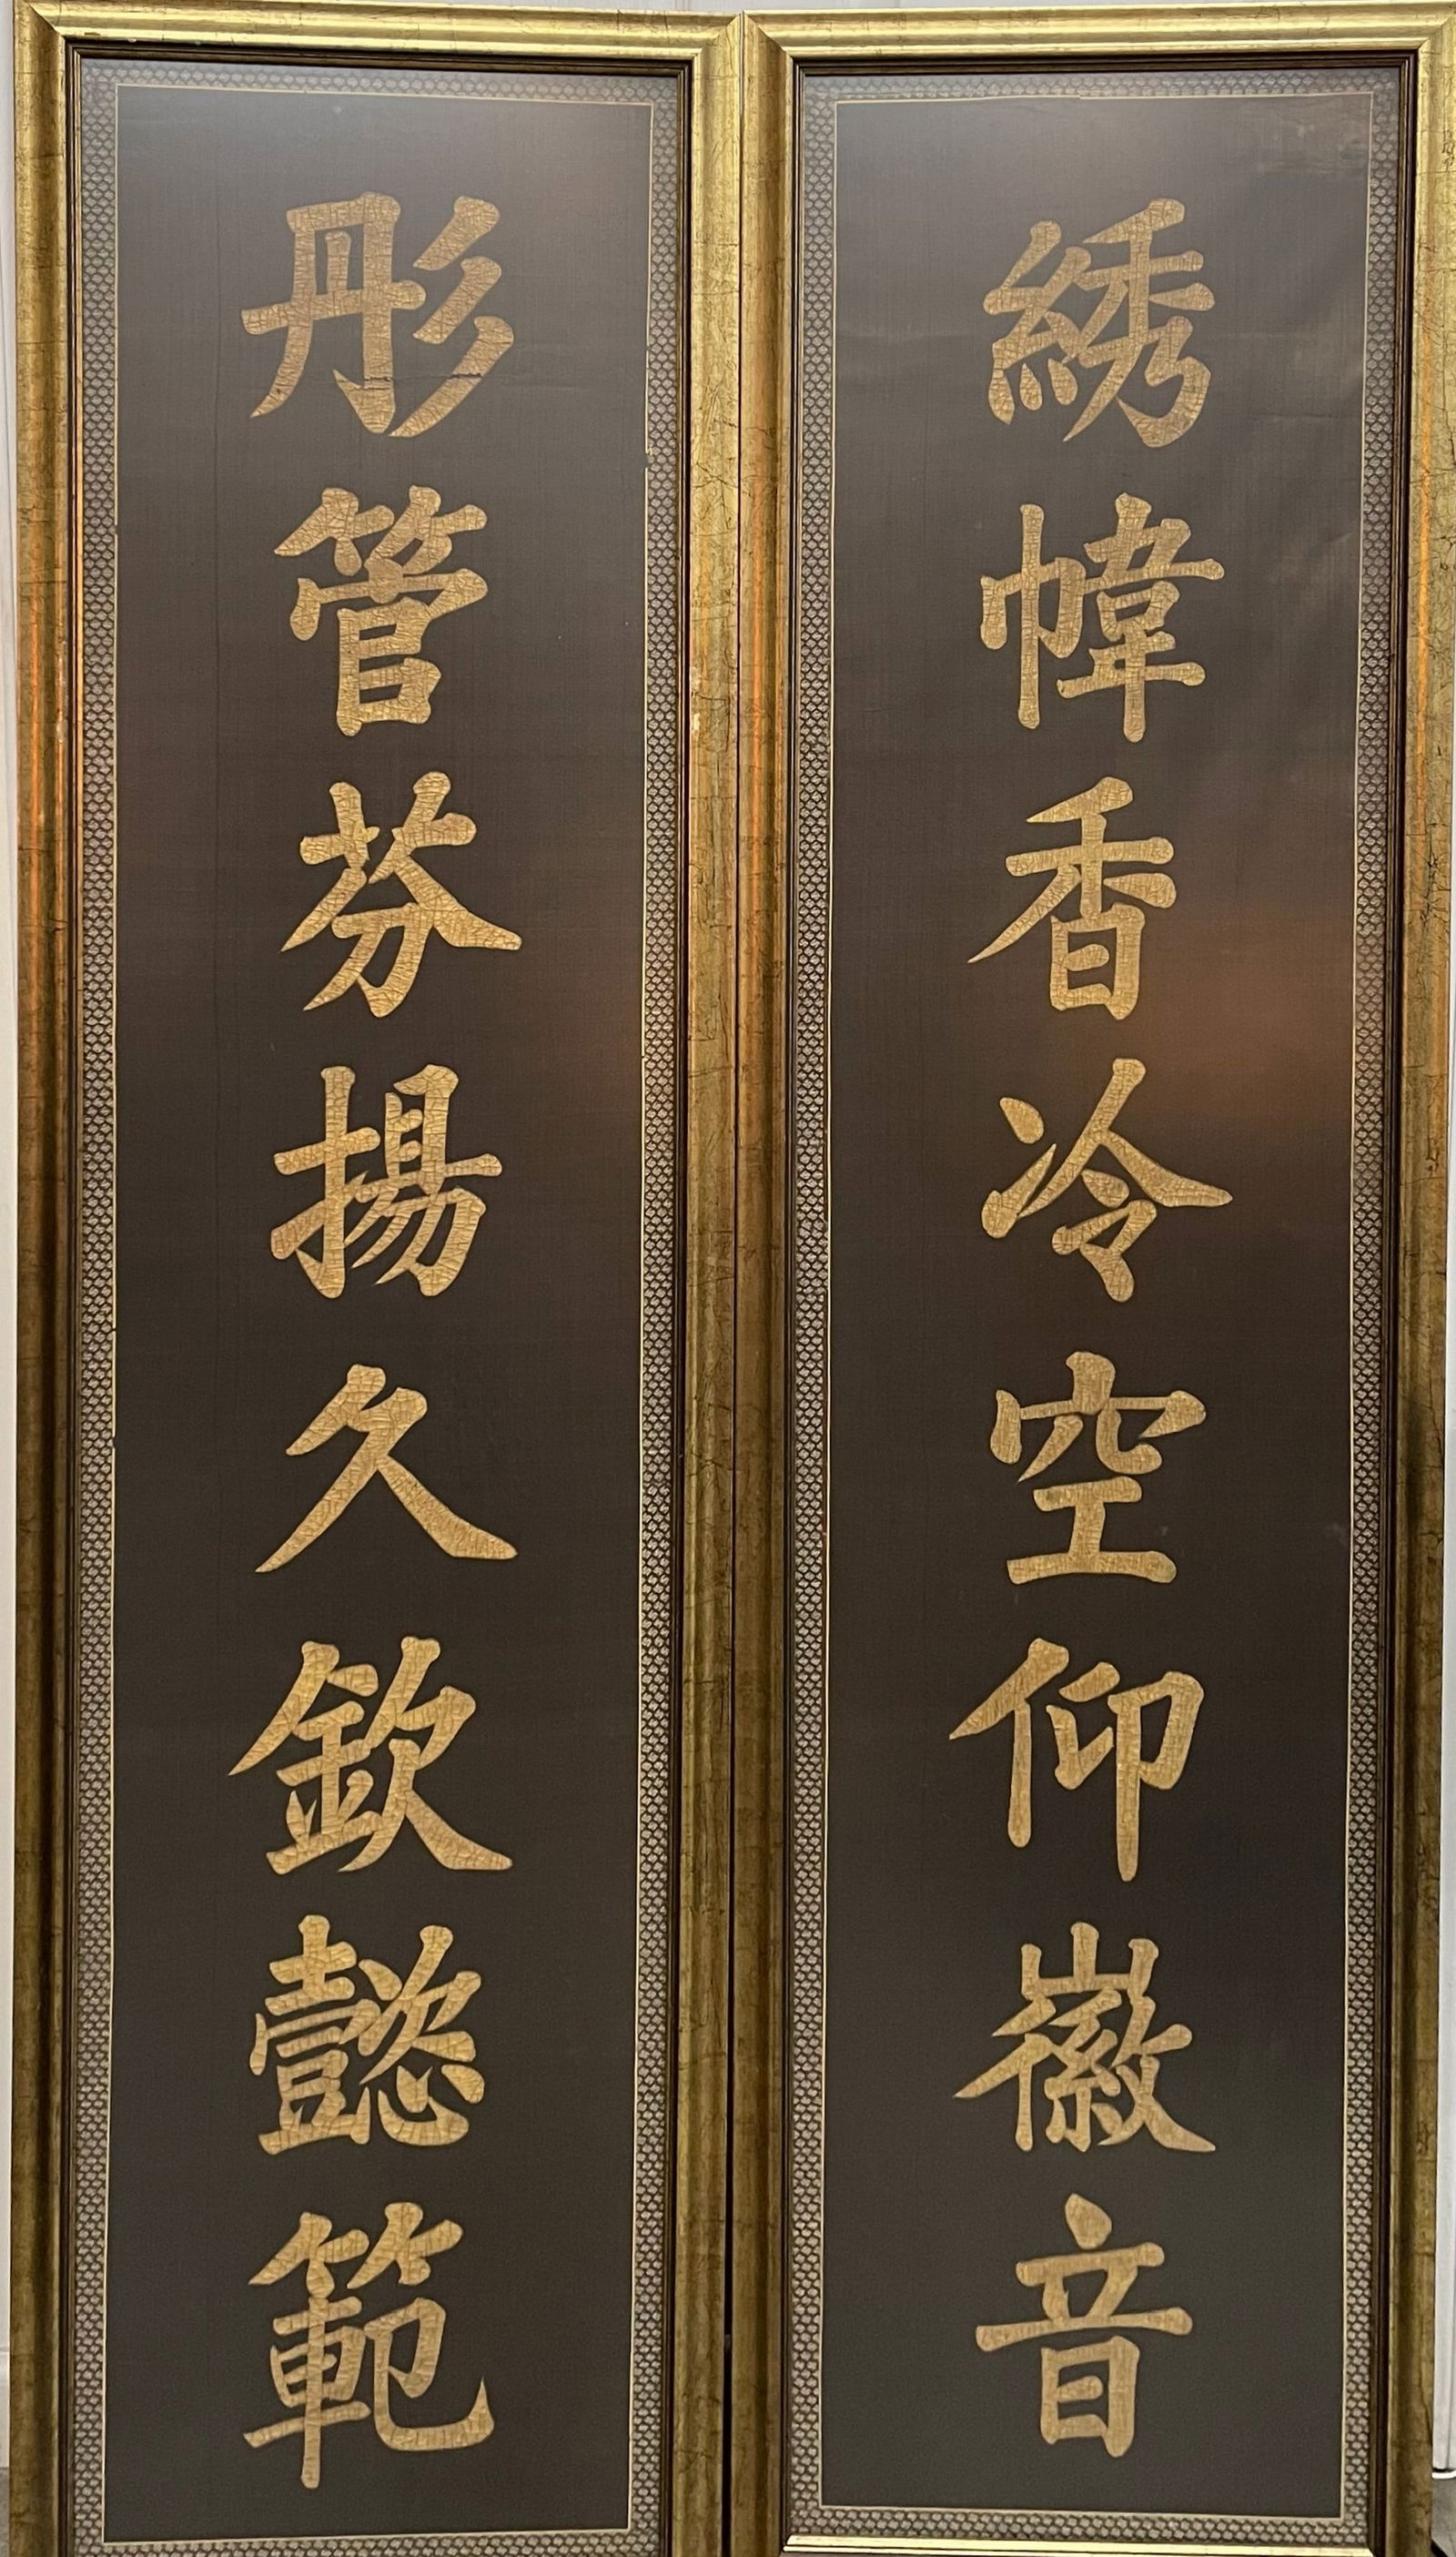 綉幃香冷空仰徽音
彤管芬揚久欽懿範